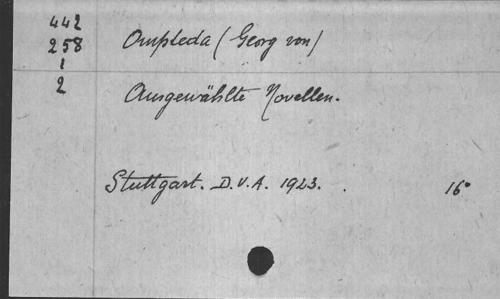 442
258
1
2
Ompteda (Georg von)
Ausgewählte Novellen.
Stuttgart. D.V.A. 1923. 16°